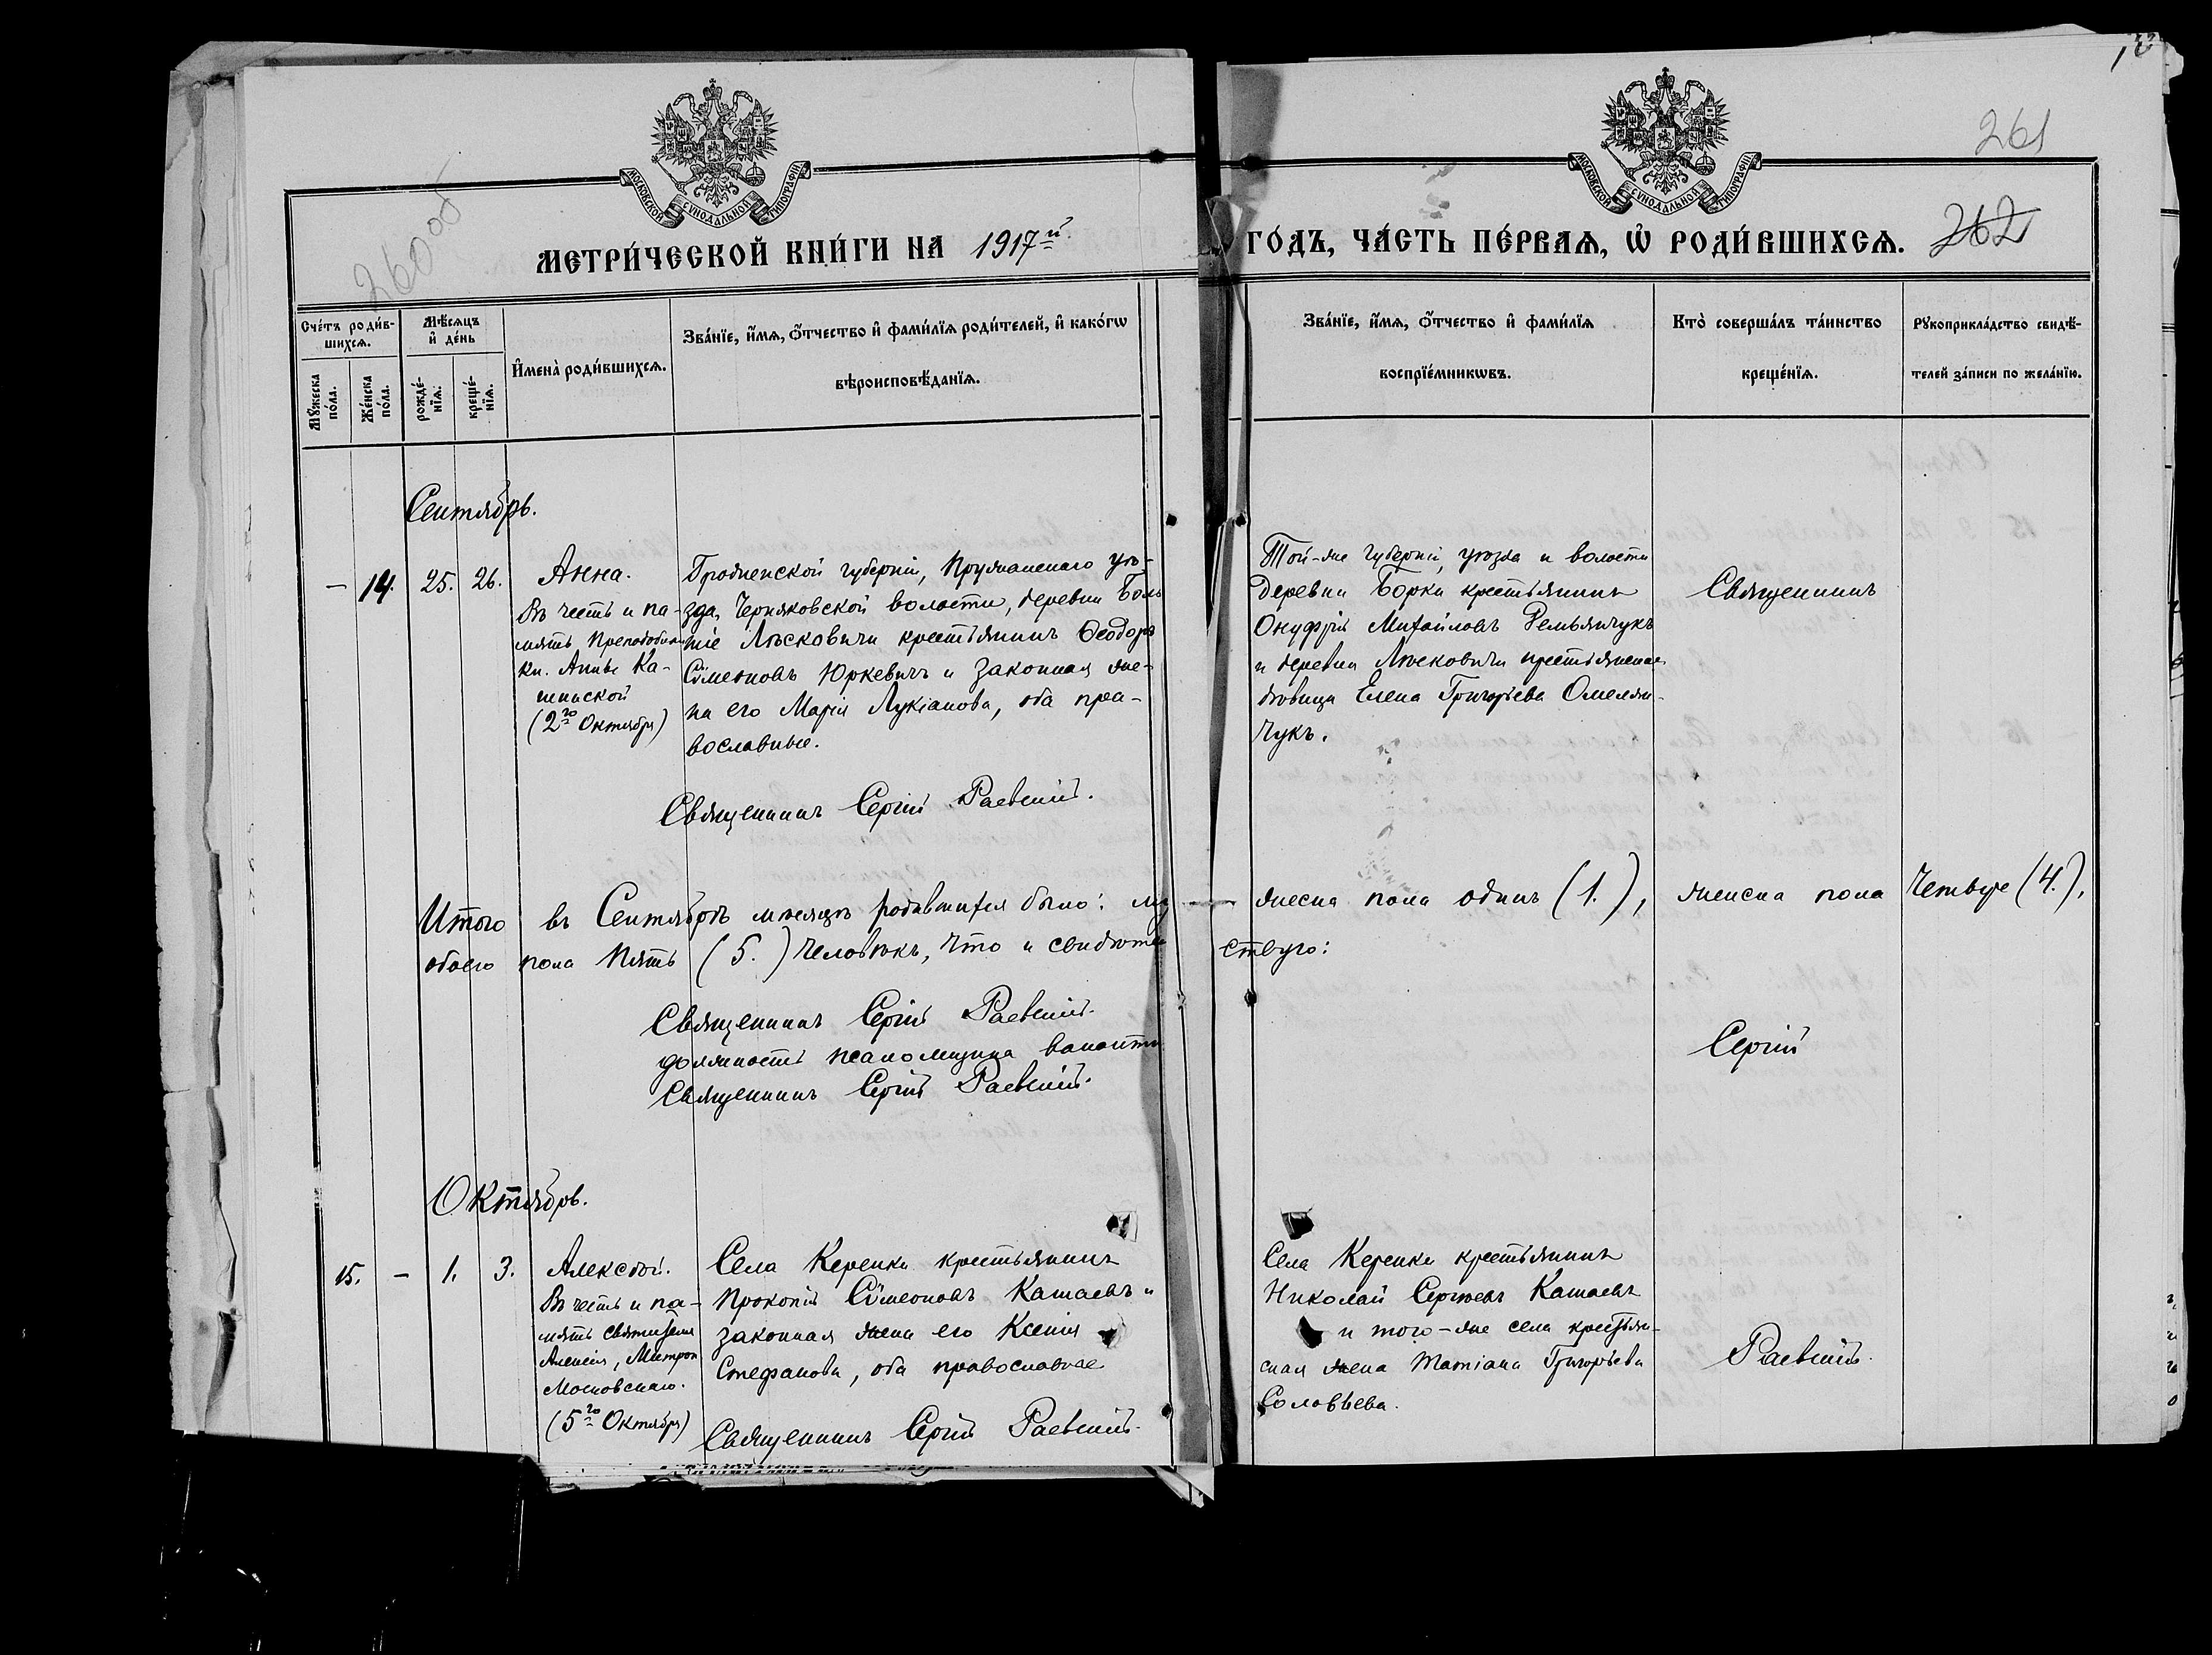 260 об
261
262
МОСКОВСКОЙ СѴНОДАЛЬНОЙ ТИПОГРАФІИ
МОСКОВСКОЙ СѴНОДАЛЬНОЙ ТИПОГРАФІИ
МЕТРИ́ЧЕСКОЙ КНИ́ГИ НА 1917й
ГО́ДЪ, ЧА́СТЬ ПЕ́РВАѦ, Ѡ҆ РОДИ́ВШИХСѦ.
Сче́тъ роди́в-
шихсѧ.
Мꙋ́жеска
по́ла.
Же́нска
по́ла.
Мѣ́сѧцъ
и҆ де́нь
рожде́-
нїѧ.
креще́-
нїѧ.
И҆мена̀ роди́вшихсѧ.
Зва́нїе, и҆́мѧ, ѻ҆́тчество и҆ фами́лїѧ роди́телей, и҆ како́гѡ
вѣроисповѣ́данїѧ.
Зва́нїе, и҆́мѧ, ѻ҆́тчество и҆ фами́лїѧ
воспрїе́мникѡвъ.
Кто̀ соверша́лъ та́инство
креще́нїѧ.
Рꙋкоприкла́дство свидѣ́-
телей за́писи по жела́нїю.
Сентябрь.
– 14. 25. 26.
Анна.
Въ честь и па-
мять Преподобн
кн. Анны Ка-
шинской
(2го Октября)
Гродненской губерніи, Пружанскаго уѣ-
зда, Черняковской волости, деревни Боль
шіе Лѣсковичи крестьянинъ Ѳеодоръ
Сѵмеоновъ Юркевичъ и законная же-
на его Марія Лукіанова, оба пра-
вославные.
Священникъ Сергій Раевскій.
Той-же губерніи, уѣзда и волости
деревни Борки крестьянинъ
Онуфрій Михайловъ Демьянчукъ
и деревни Лѣсковичи крестьянская
вдовица Елена Григорьева Омельян-
чукъ.
Священникъ
Итого въ Сентябрѣ мѣсяцѣ родившихся было: му
жеска пола одинъ (1.), женска пола четверо (4.),
обоего пола пять (5.) человѣкъ, что и свидѣтель
ствую:
Священникъ Сергій Раевскій.
должность псаломщика вакантна
Священникъ Сергій Раевскій.
Сергій
Октябрь.
15. – 1. 3.
Алексѣй.
Въ честь и па-
мять Святителя
Алексія, Митроп
Московскаго.
(5го Октября)
Села Керенки крестьянинъ
Прокопій Сѵмеоновъ Камаевъ и
законная жена его Ксенія
Стефанова, оба православные
Священникъ Сергій Раевскій.
Села Керенки крестьянинъ
Николай Сергѣевъ Камаевъ
и того-же села крестьян-
ская жена Татіана Григорьева
Соловьева.
Раевскій.